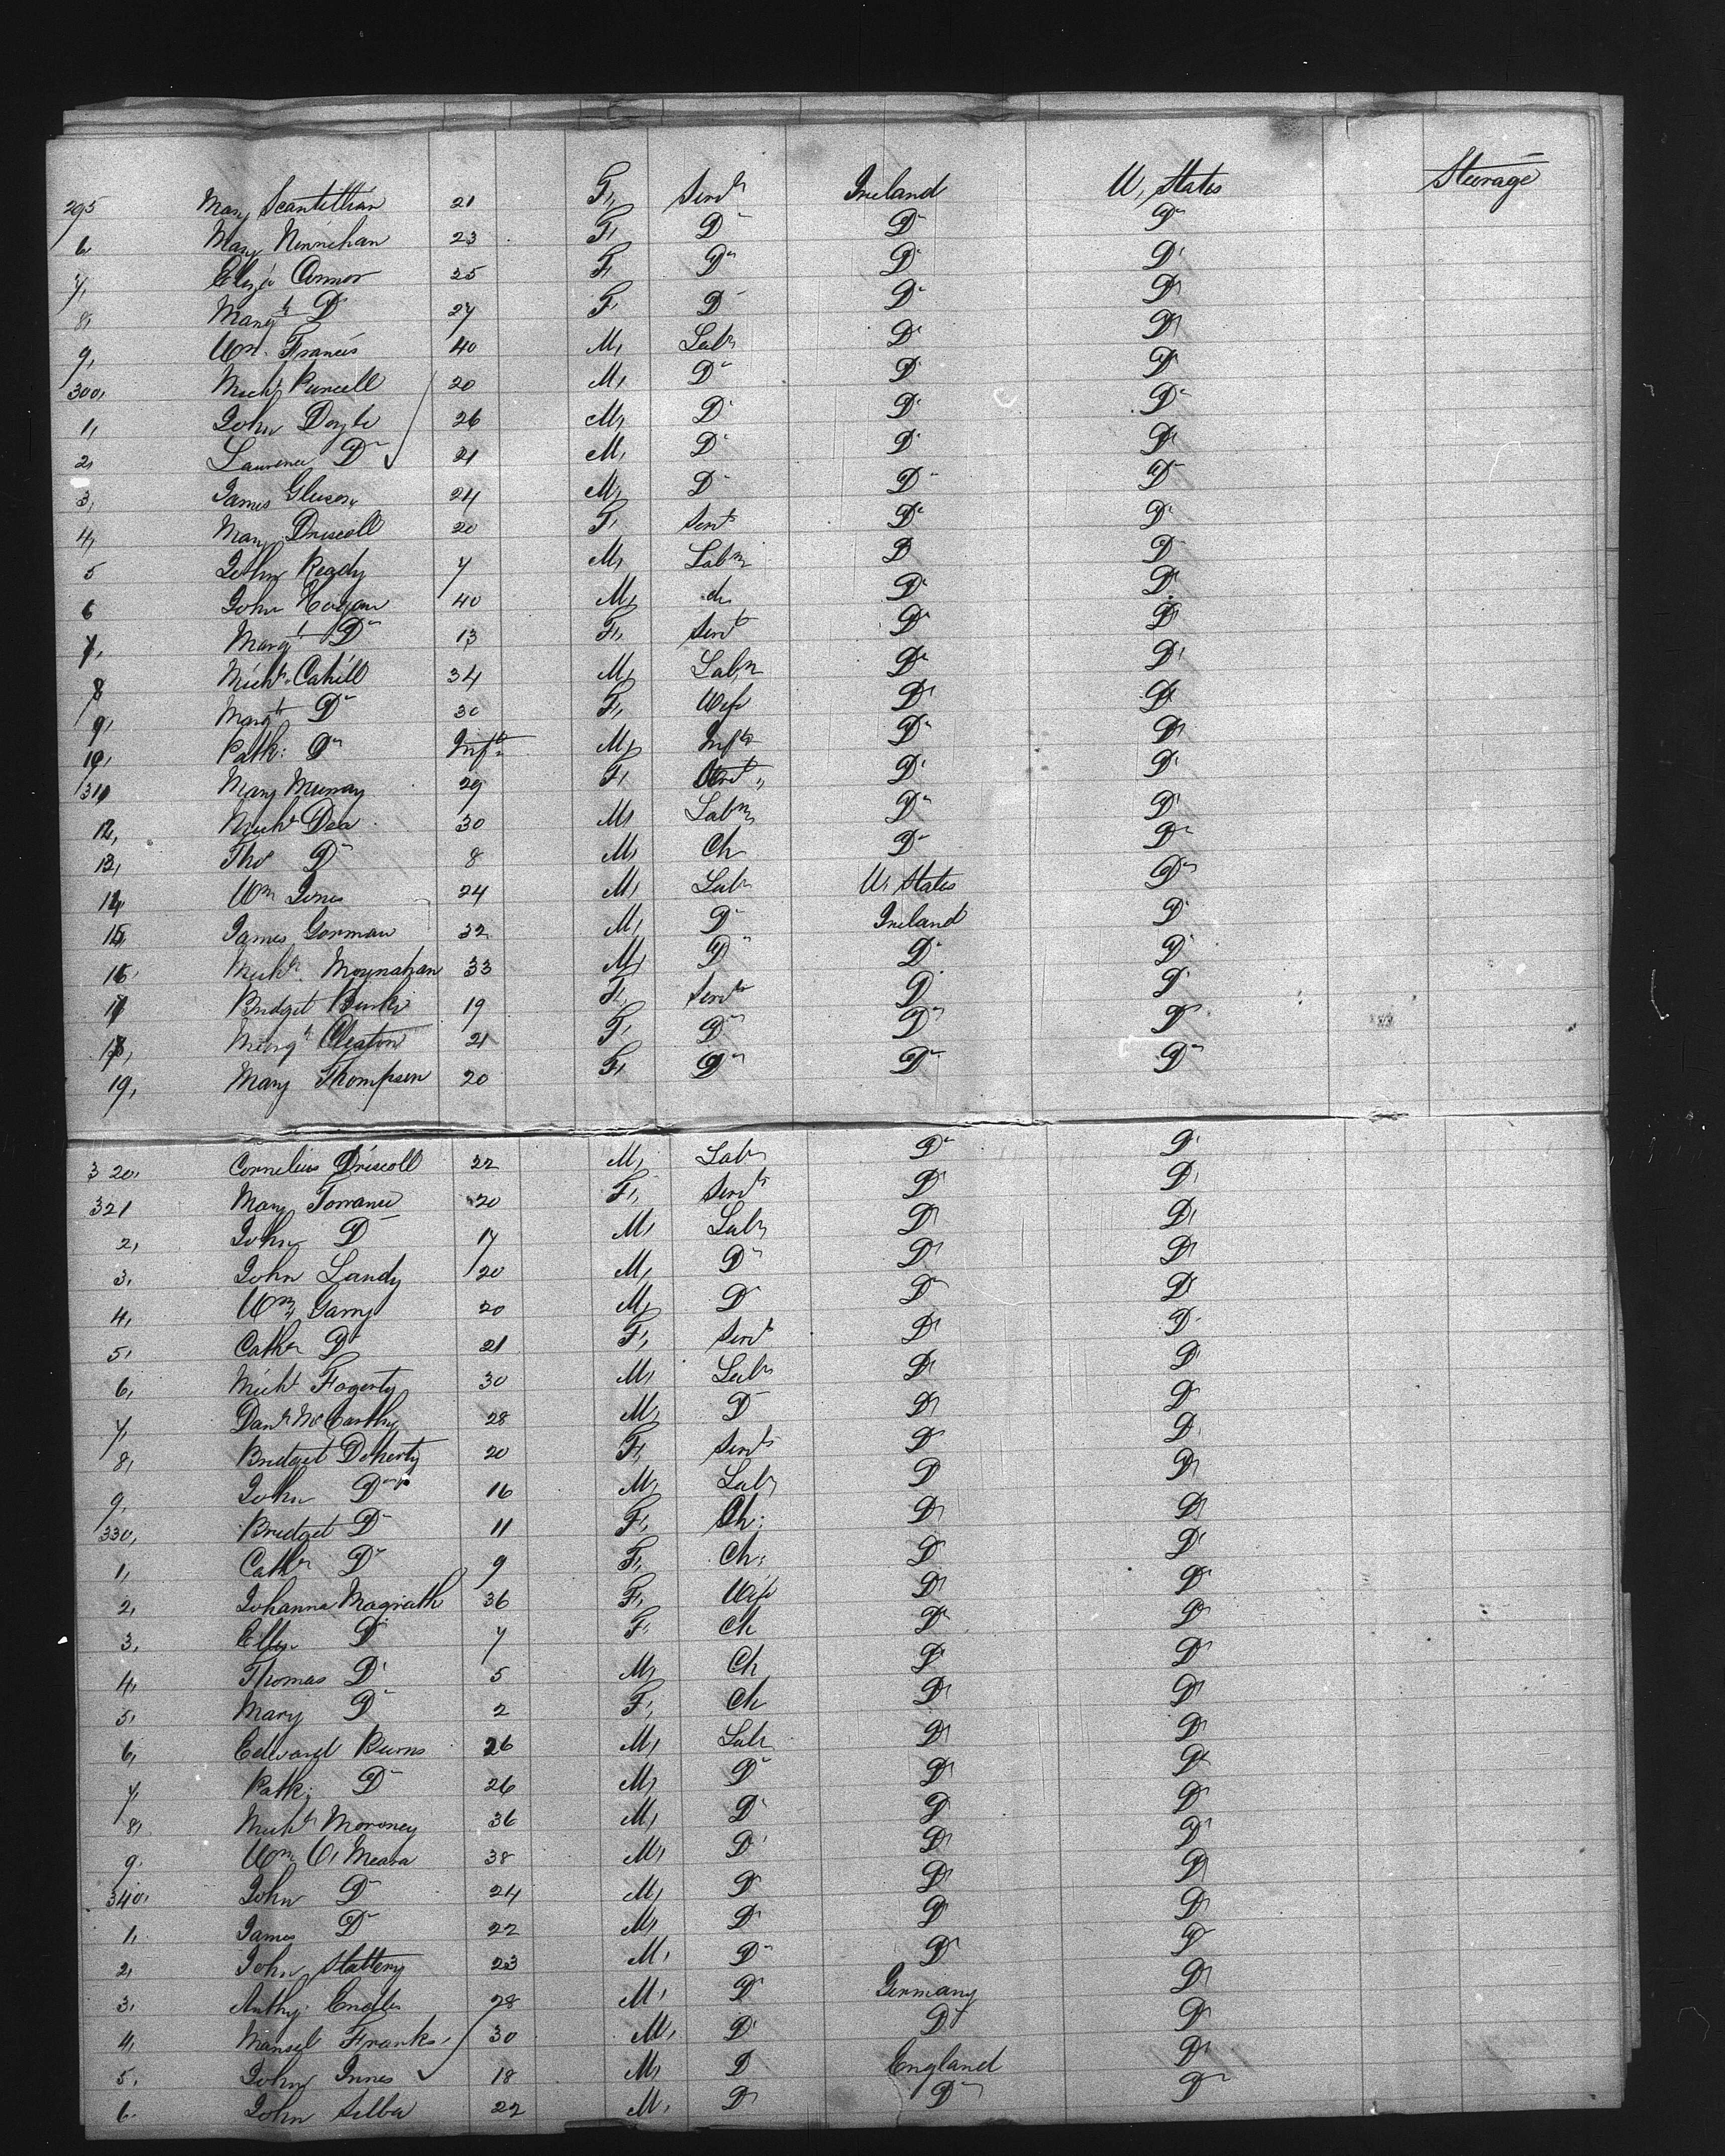 295 Mary Scantillian 21 F, Servt Ireland U, States Steerage
6 Mary Ninnehan 23 F, D D D
7, Eliza Connor 25 F, D D D
8, Margt D 27 F, D D D
9, Wm Francis 40 M, Labr D D
300, Michl Purcell 20 M, D D D
1, John Doyle 26 M, D D D
2, Laurence D 21 M, D D D
3, James Gleeson 24 M, D D D
4, Mary Driscoll 20 F, Servt D D
5 John Ready 7 M, Labr D D
6 John Hogan 40 M, do D D
7, Margt D 13 F, Servt D D
8 Michl Cahill 34 M, Labr D D
9, Margt D 30 F, Wife D D
10, Patk: D Inft M, Inft D D
311 Mary Murray 29 F, Servt D D
12, Michl Dea 30 M, Labr D D
13, Thos D 8 M, Ch D D
14, Wm Jones 24 M, Labr U, States D
15, James Gorman 32 M, D Ireland D
16, Michl Moynahan 33 M, D D D
17 Bridget Burke 19 F, Servt D D
18, Margt Cleaton 21 F, D D D
19, Mary Thompson 20 F, D D D
320, Cornelius Driscoll 22 M, Labr D D
321 Mary Torrance 20 F, Servt D D
2, John D 17 M, Labr D D
3, John Landy 20 M, D D D
4, Wm Garry 20 M, D D D
5, Cathn D 21 F, Servt D D
6, Michl Fogerty 30 M, Labr D D
7, Danl McCarthy 28 M, D D D
8, Bridget Doherty 20 F, Servt D D
9, John D 16 M, Labr D D
330, Bridget D 11 F, Ch: D D
1, Cathn D 9 F, Ch: D D
2, Johanna Magrath 36 F, Wife D D
3, Ellen D 7 F, Ch D D
4, Thomas D 5 M, Ch D D
5, Mary D 2 F, Ch D D
6, Edward Burns 26 M, Labr D D
7, Patk: D 26 M, D D D
8, Michl Moroney 36 M, D D D
9, Wm O'Meara 38 M, D D D
340, John D 24 M, D D D
1, James D 22 M, D D D
2, John Slattery 23 M, D D D
3, Anthy: 28 M, D Germany D
4, Mansel Franks 30 M, D D D
5, John Innes 18 M, D England D
6 John Silba 22 M, D D D